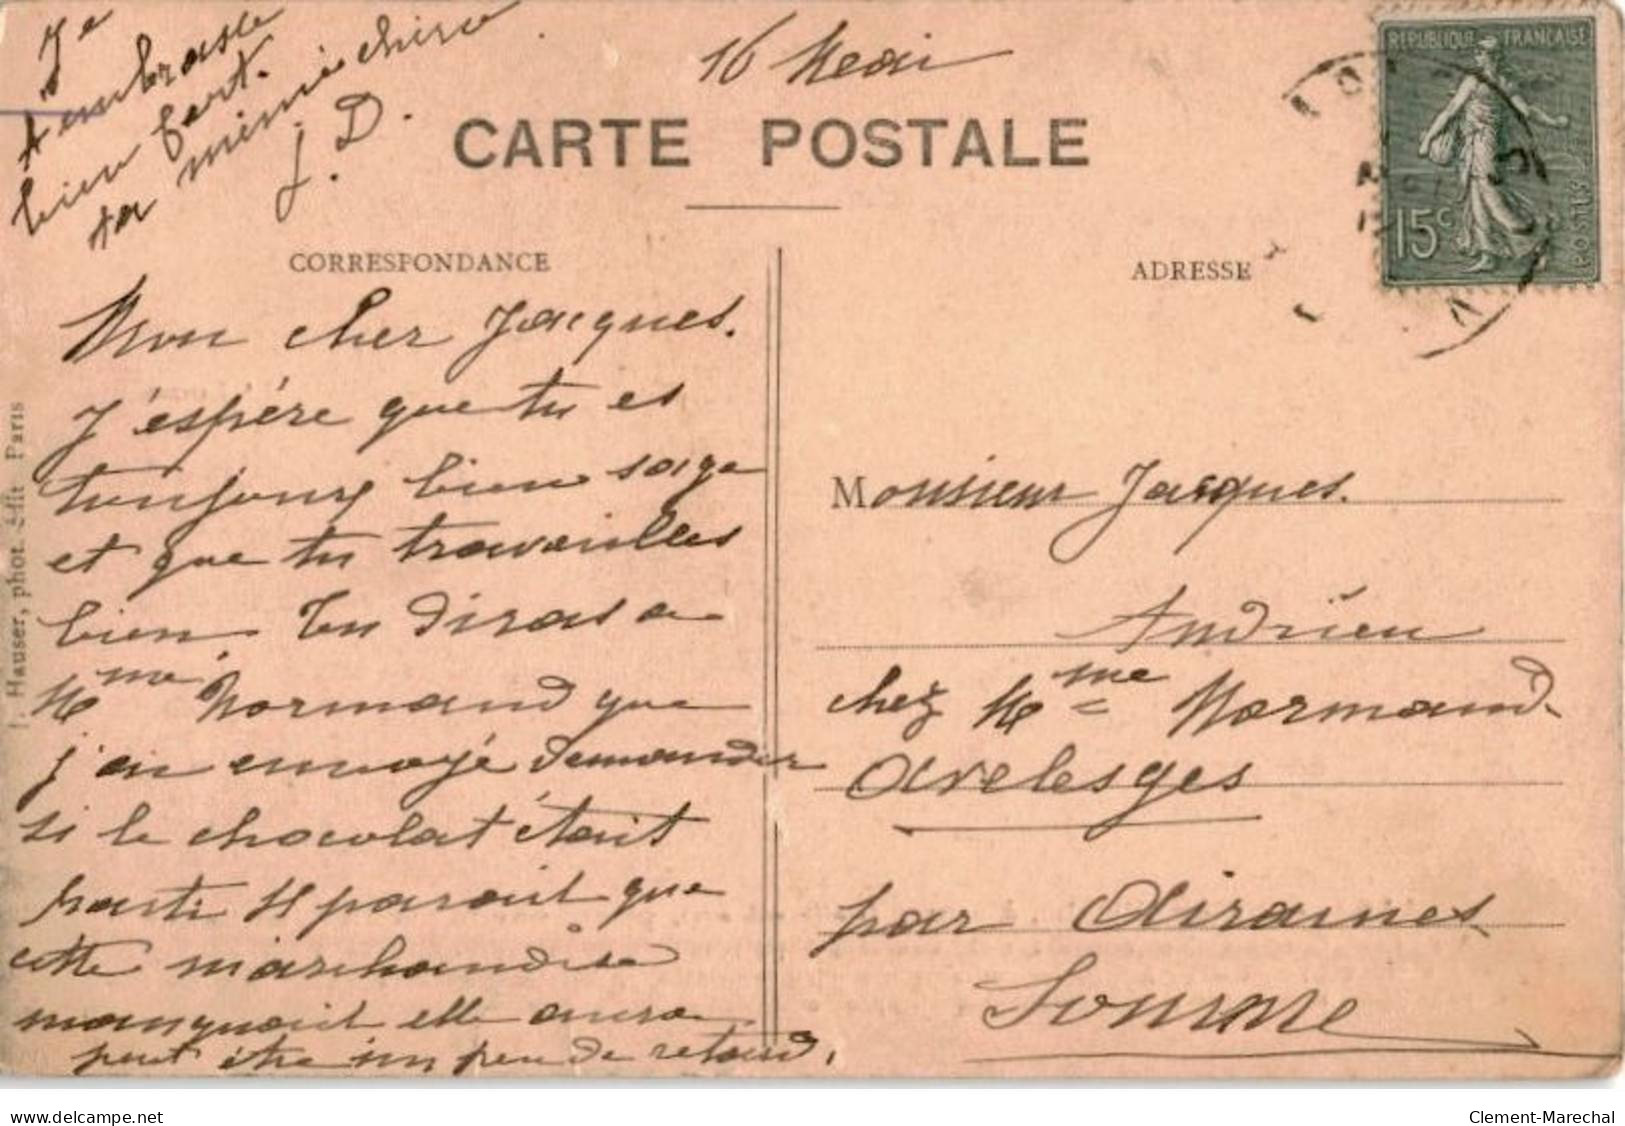 Je
t'embrasse
bien fort.
ta mémé chérie
J. D.
16 Mai
CARTE POSTALE
CORRESPONDANCE
ADRESSE
REPUBLIQUE FRANÇAISE
15c
POSTES
Mon cher Jacques.
J'espère que tu es
toujours bien sage
et que tu travailles
bien. Tu diras a
Mme Normand que
j'ai envoyé demander
si le chocolat était
parti Il parait que
cette marchandise
manquait elle aura
peut être un peu de retard.
Monsieur Jacques.
Andrieu
chez Mme Normand
Avelesges
par Airaines
Somme
Hauser, phot. Edit Paris
www.delcampe.net
Clement-Marechal